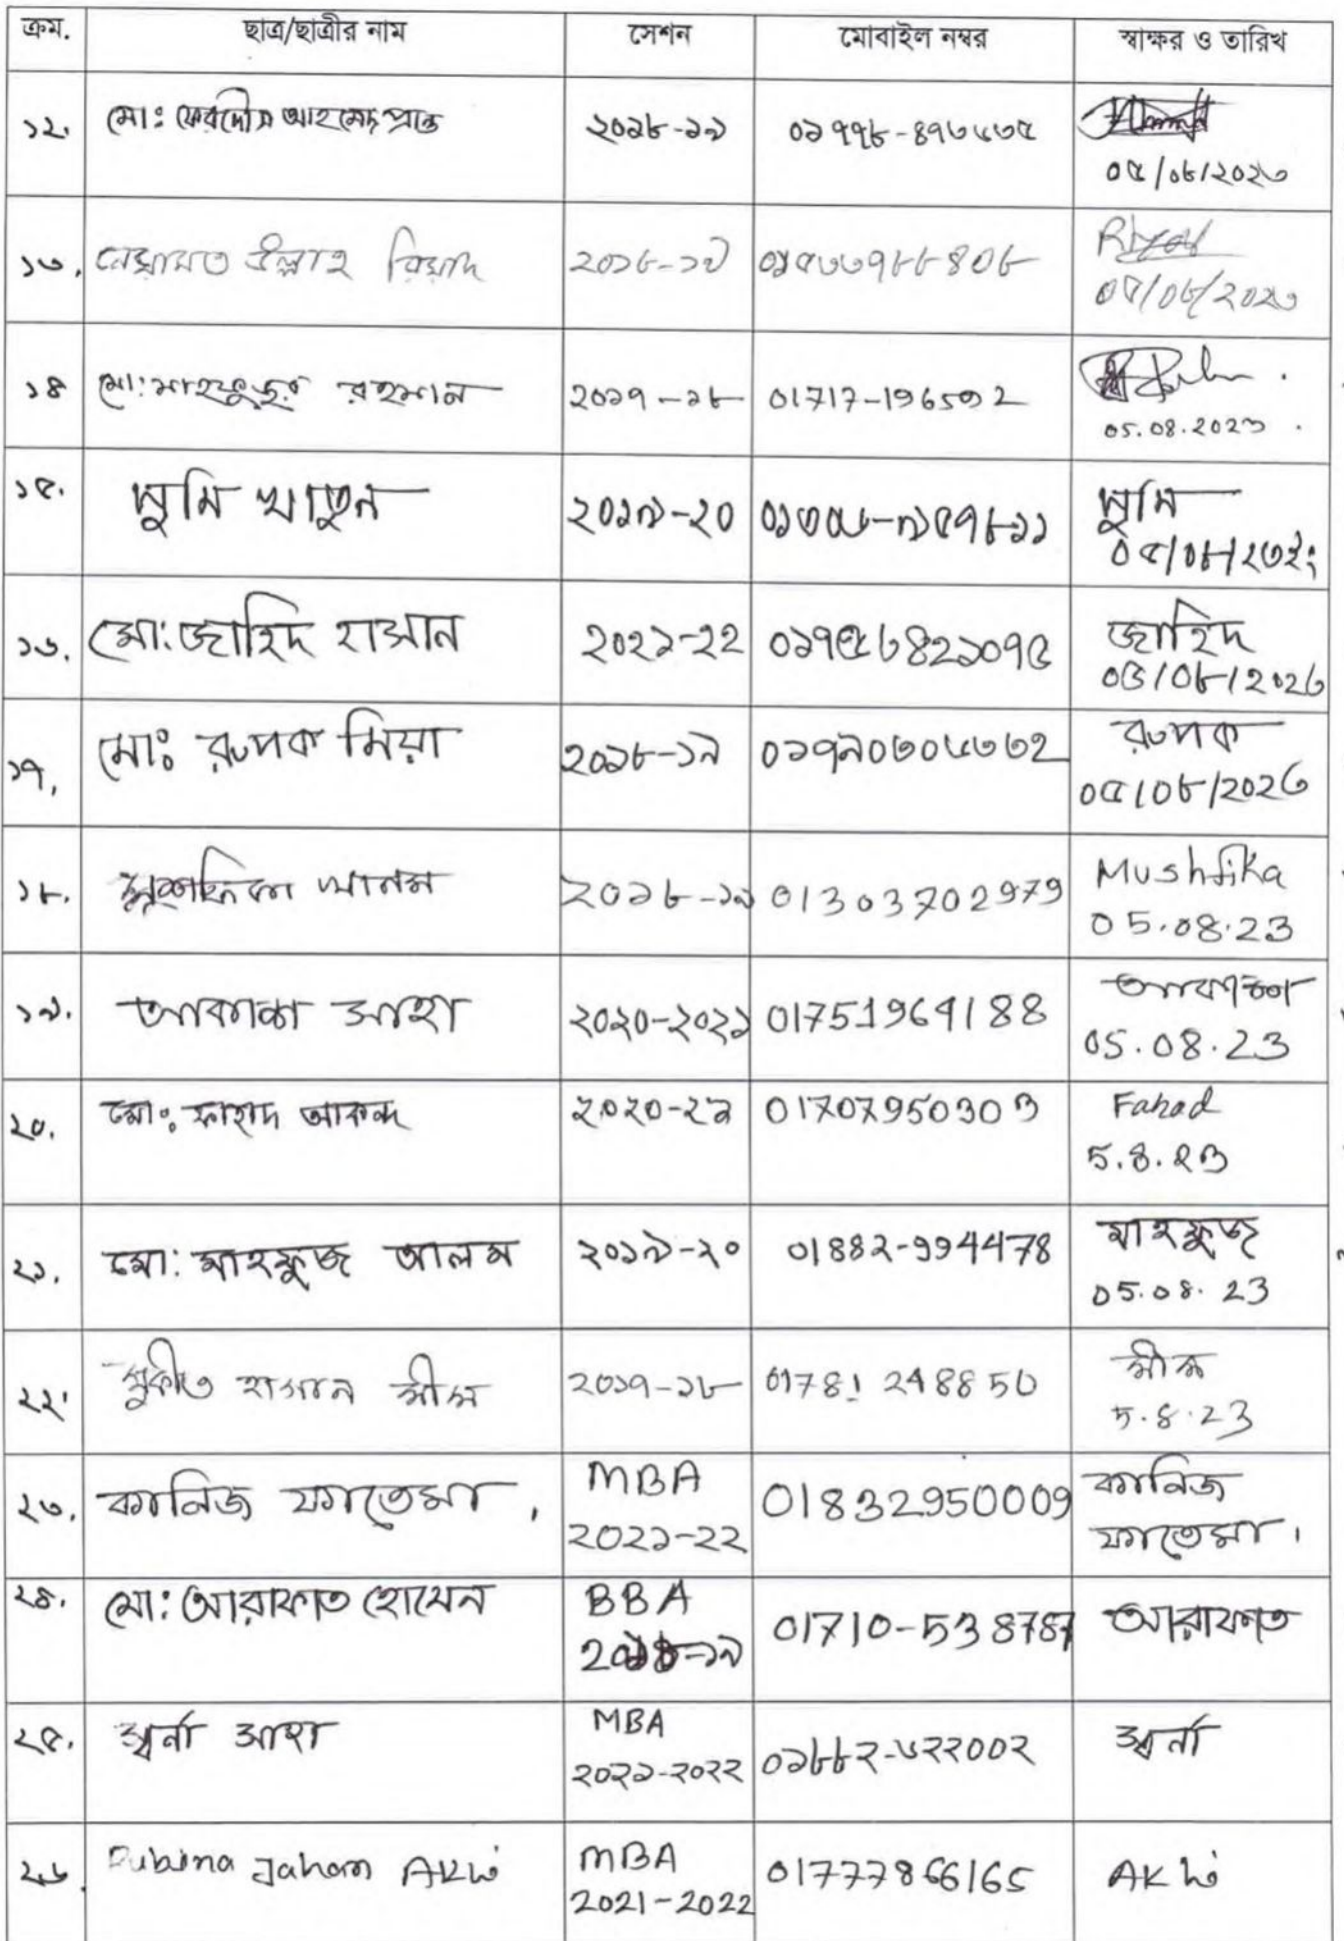 ক্রম. ছাত্র/ছাত্রীর নাম সেশন মোবাইল নম্বর স্বাক্ষর ও তারিখ
১২. মোঃ ফেরদৌস আহমেদ প্রান্ত ২০১৮-১৯ ০১৭৭৮-৪৭৬৬৩৫
০৫/০৮/২০২৩
১৩. নেয়ামত উল্লাহ রিয়াদ ২০১৮-১৯ ০১৫৩৩৭৮৮৪০৮ Riyad
০৫/০৮/২০২৩
১৪ মো: মাহফুজুর রহমান ২০১৭-১৮ 01717-196592
05.08.2023
১৫. সুমি খাতুন ২০১৯-২০ সুমি
০৫/০৮/২০২৩
১৬. মো: জাহিদ হাসান ২০২১-২২ ০১৭৫৬৪২১০৭৫ জাহিদ
০৫/০৮/২০২৩
১৭. মোঃ রুপক মিয়া ২০১৮-১৯ ০১৭৯০৩০৬৩৩২ রুপক
০৫/০৮/২০২৩
১৮. মুশফিকা আনম ২০১৮-১৯ 01303702979 Mushfika
05.08.23
১৯. আকাশ সাহা ২০২০-২০২১ 01751964188 আকাশ
05.08.23
২০. মোঃ ফাহাদ আকন্দ ২০২০-২১ 01707950303 Fahad
5.8.23
২১. মো: মাহফুজ আলম ২০১৯-২০ 01882-994478 মাহফুজ
05.08.23
২২. মুকীত হাসান সীম ২০১৭-১৮ 01781 248850 সীম
5.8.23
২৩. কানিজ ফাতেমা। MBA 01832950009 কানিজ
২০২১-২২ ফাতেমা।
২৪. মো: আরাফাত হোসেন BBA 01710-538787 আরাফাত
২০১৮-১৯
২৫. স্বর্না সাহা MBA ০১৮৮২-৬২২০০২ স্বর্না
২০২১-২০২২
২৬. Rubina Jahan Akhi MBA 01777866165 Akhi
2021-2022